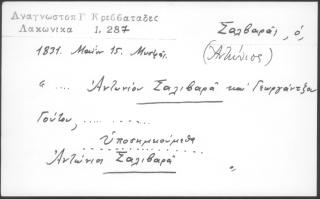 Αναγνωστοπ Γ Κρεββαταδες
Λακωνικα Ι, 287
Σαλβαρᾶ, ὁ,
(Ἀντώνιος)
1831. Μαΐου 15. Μυστρᾶ.
" .... Ἀντωνίου Σαλιβαρᾶ καὶ Γεωργάντζου
Γούτου, .... ......
Ὑποσημειούμεθα
Ἀντώνιος Σαλιβαρᾶ "